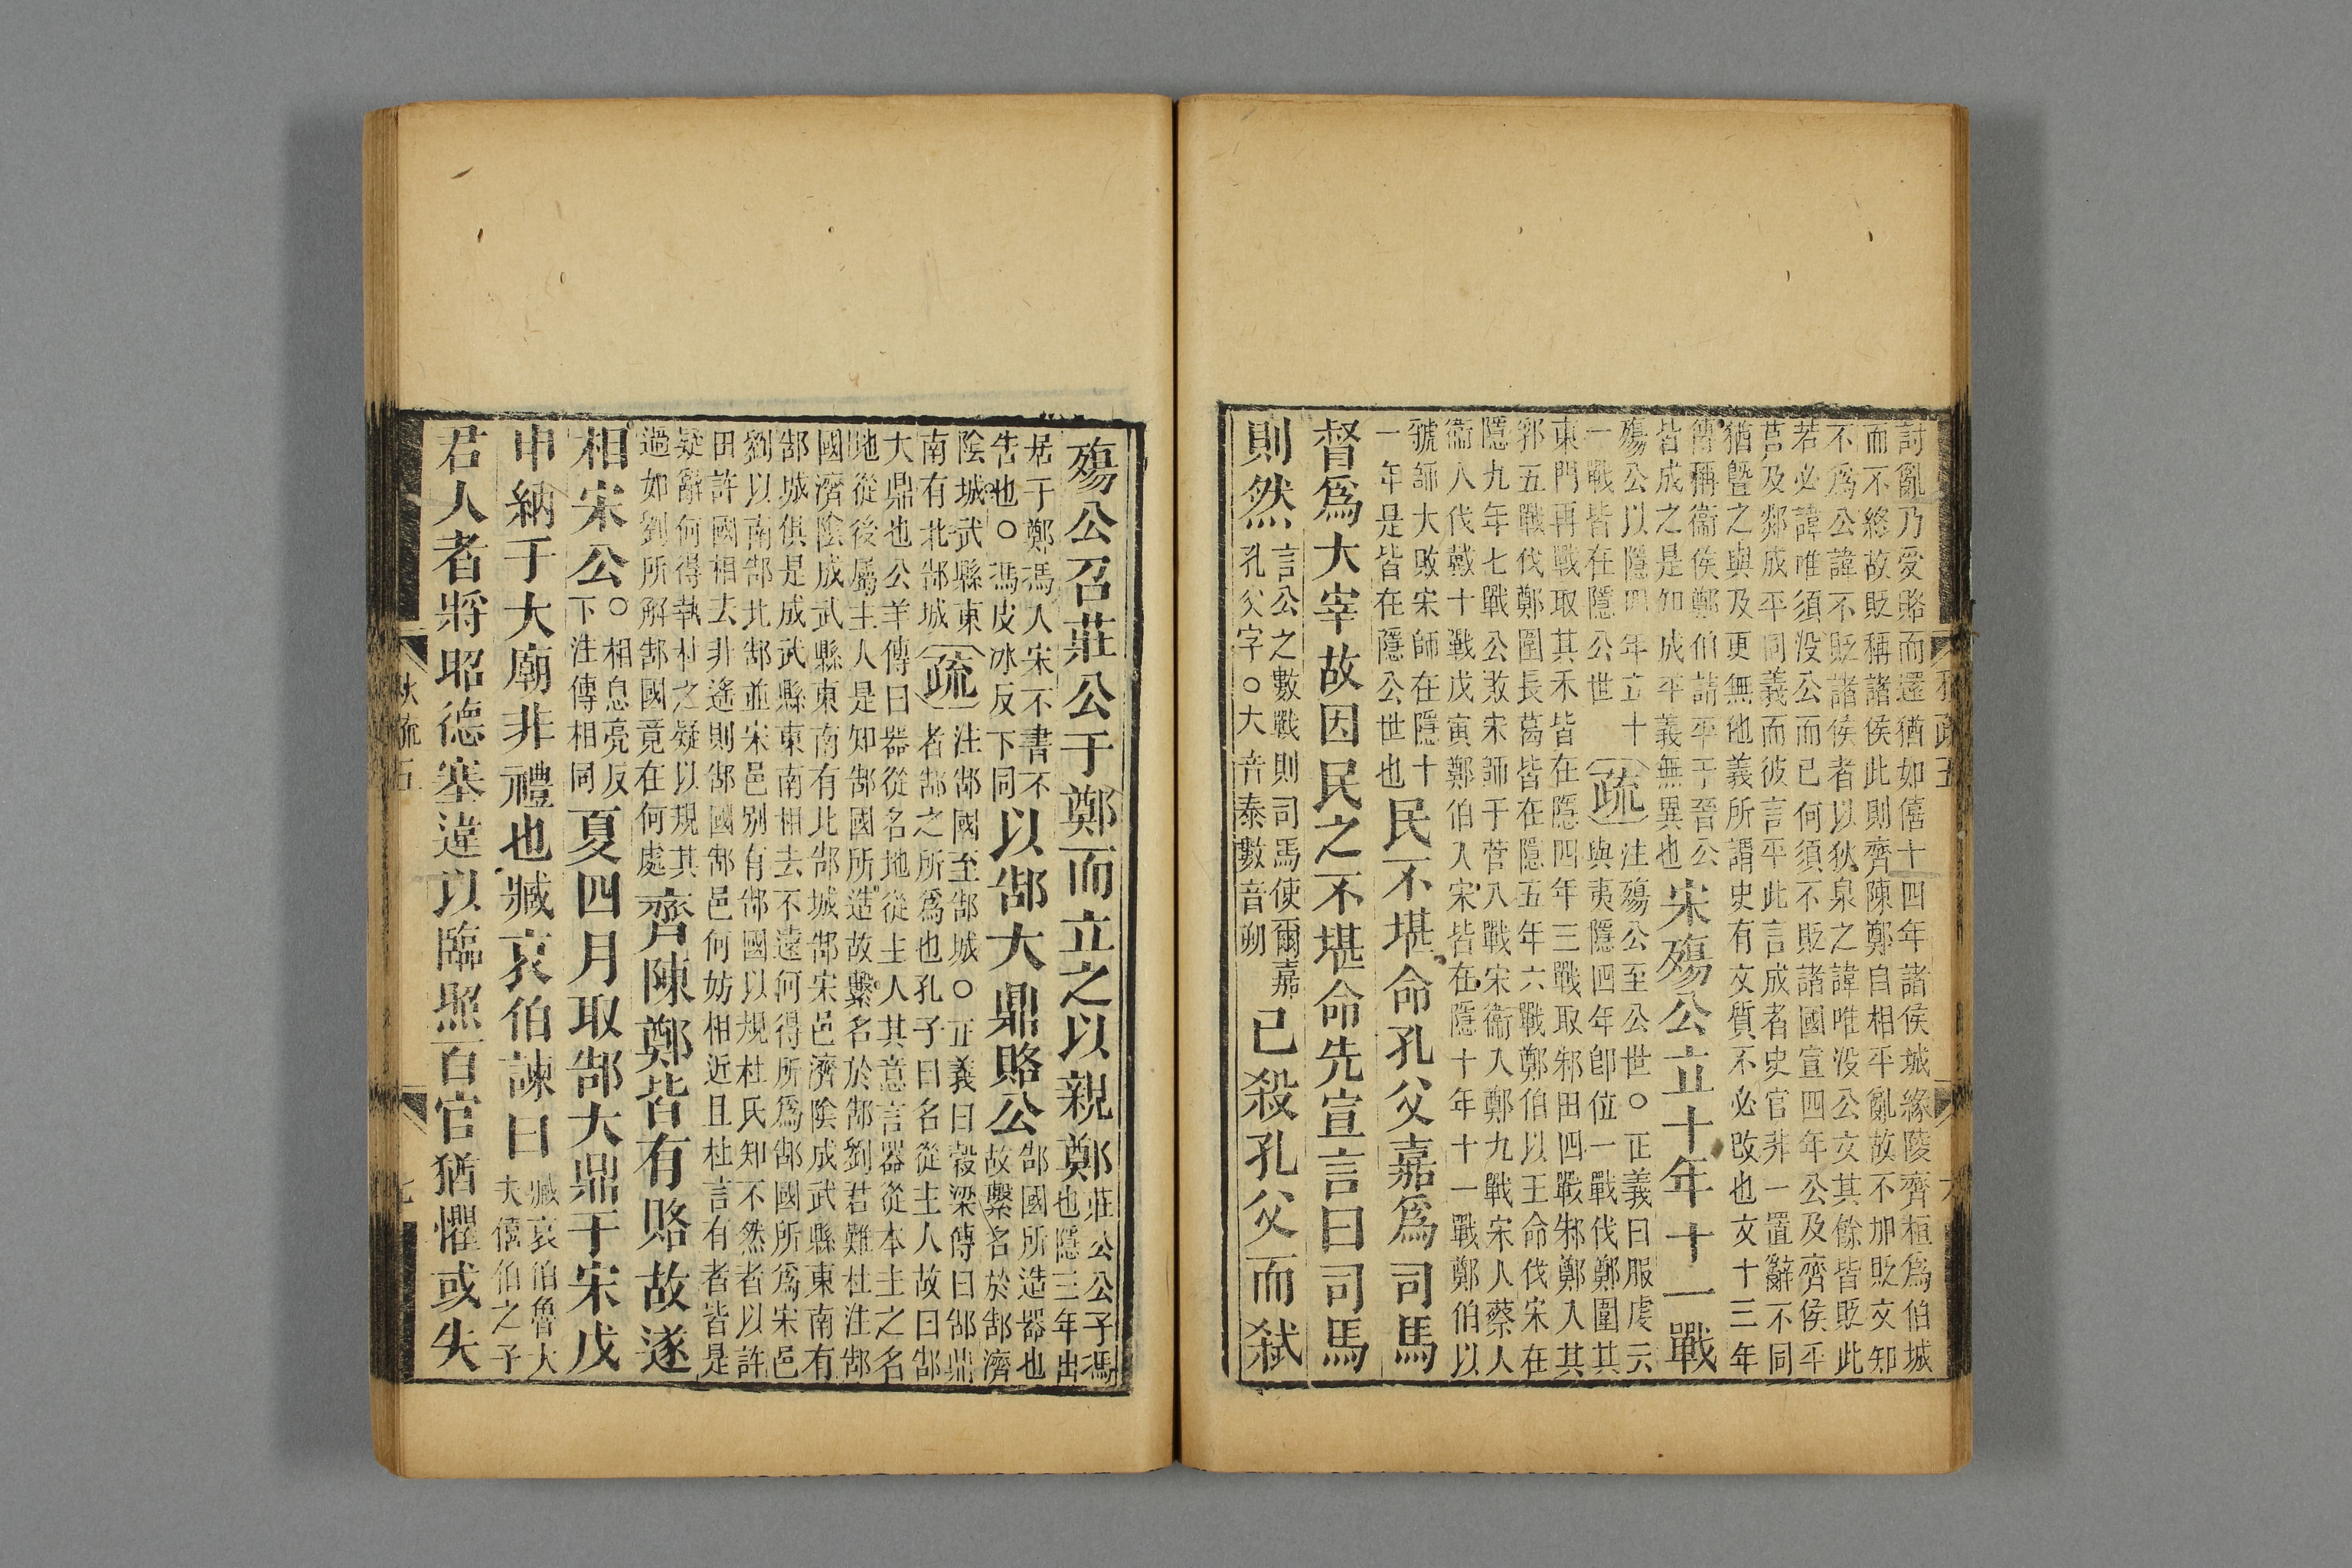 討亂乃受賂而還猶如僖十四年諸侯城緣陵齊桓爲伯城
而不終故貶稱諸侯此則齊陳鄭自相平亂故不加貶文知
不爲公諱不貶諸侯者以狄泉之諱唯没公文其餘皆貶此
若必諱唯須没公而已何須不貶諸國宣四年公及齊侯平
莒及郯成平同義而彼言平此言成者史官非一置辭不同
猶曁之與及更無他義所謂史有文質不必改也文十三年
傳稱衞侯鄭伯請平于晉公
皆成之是知成平義無異也宋殤公立十年十一戰
殤公以隱四年立十
一戰皆在隱公世疏注殤公至公世○正義曰服虔云
與夷隱四年卽位一戰伐鄭圍其
東門再戰取其禾皆在隱四年三戰取邾田四戰邾鄭入其
郛五戰伐鄭圍長葛皆在隱五年六戰鄭伯以王命伐宋在
隱九年七戰公敗宋師于菅八戰宋衞入鄭九戰宋人蔡人
衞人伐戴十戰戊寅鄭伯入宋皆在隱十年十一戰鄭伯以
虢師大敗宋師在隱十
一年是皆在隱公世也民不堪命孔父嘉爲司馬
督爲大宰故因民之不堪命先宣言曰司馬
則然言公之數戰則司馬使爾嘉
孔父字○大音泰數音朔已殺孔父而弒
殤公召莊公于鄭而立之以親鄭莊公公子馮
也隱三年出
居于鄭馮入宋不書不
告也○馮皮冰反下同以郜大鼎賂公郜國所造器也
故繫名於郜濟
陰城武縣東
南有北郜城疏注郜國至郜城○正義曰穀梁傳曰郜鼎
者郜之所爲也孔子曰名從主人故曰郜
大鼎也公羊傳曰器從名地從主人其意言器從本主之名
地從後屬主人是知郜國所造故繫名於郜劉君難杜注郜
國濟陰成武縣東南有北郜城郜宋邑濟陰成武縣東南有
郜城俱是成武縣東南相去不遠何得所爲郜國所爲宋邑
劉以南郜北郜並宋邑别有郜國以規杜氏知不然者以許
田許國相去非遙則郜國郜邑何妨相近且杜言有者皆是
疑辭何得執杜之疑以規其
過如劉所解郜國竟在何處齊陳鄭皆有賂故遂
相宋公○相息亮反
下注傳相同夏四月取郜大鼎于宋戊
申納于大廟非禮也臧哀伯諫曰臧哀伯魯大
夫僖伯之子
君人者將昭德塞違以臨照百官猶懼或失